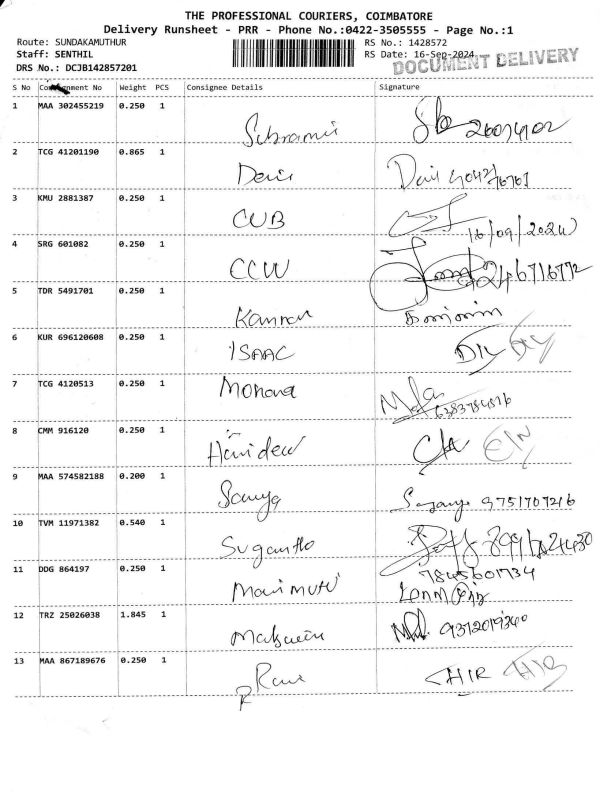 THE PROFESSIONAL COURIERS, COIMBATORE
Delivery Runsheet - PRR - Phone No.:0422-3505555 - Page No.:1
Route: SUNDAKAMUTHUR RS No.: 1428572
Staff: SENTHIL RS Date: 16-Sep-2024
DRS No.: DCJB142857201 DOCUMENT DELIVERY
S No Consignment No Weight PCS Consignee Details Signature
1 MAA 302455219 0.250 1
2 TCG 41201190 0.865 1 Devi
3 KMU 2881387 0.250 1 CUB 16/09/2024
4 SRG 601082 0.250 1 CCW
5 TDR 5491701 0.250 1 Kannan
6 KUR 696120608 0.250 1 ISAAC
7 TCG 4120513 0.250 1 Mohana
8 CMM 916120 0.250 1
9 MAA 574582188 0.200 1 9751707216
10 TVM 11971382 0.540 1 Sugantha
11 DDG 864197 0.250 1 Marimuthu 7845601734
12 TRZ 25026038 1.845 1
13 MAA 867189676 0.250 1